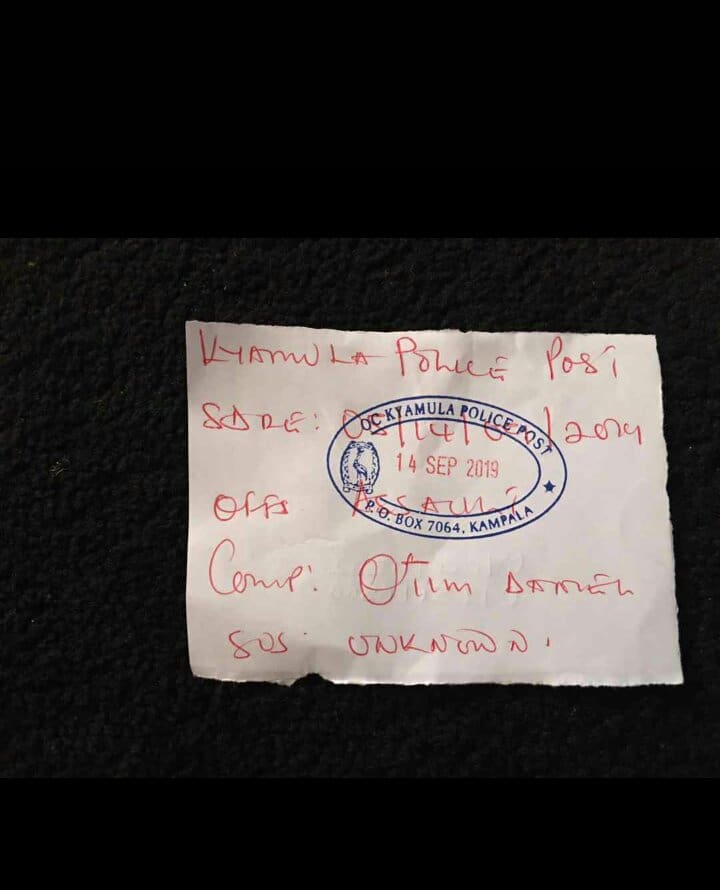 KYAMULA POLICE POST
SDRE: 05/14/09/2019
OC KYAMULA POLICE POST
14 SEP 2019
P.O. BOX 7064, KAMPALA
OFFS ASSAULT
Comp: Otim DANIEL
SUS: UNKNOWN.